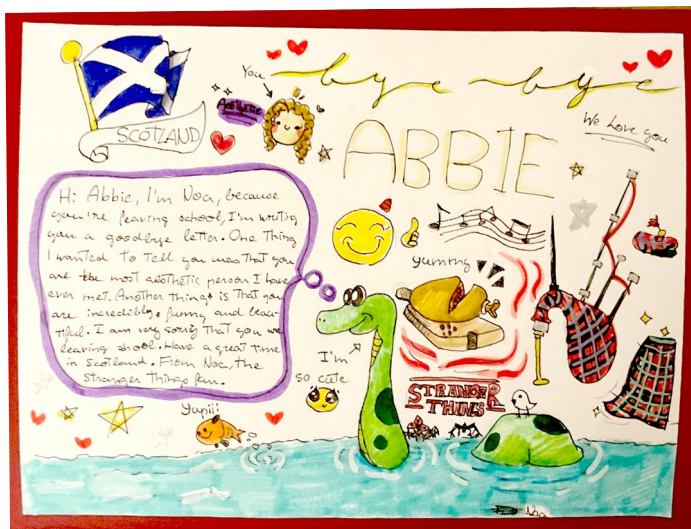 bye bye
You
Aesthetic
SCOTLAND
ABBIE
We Love you
Hi Abbie, I'm Noa, because
you're leaving school, I'm writing
you a goodbye letter. One thing
I wanted to tell you was that you
are the most aesthetic person I have
ever met. Another things is that you
are incredibly funny and beau-
tiful. I am very sorry that you
leaving school. Have a great time
in Scotland. From Noa, the
stranger things fan.
yummy
I'm
so cute
STRANGER
THINGS
Yupii!
Noa